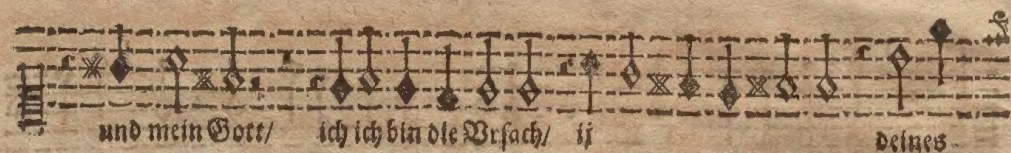 und mein Gott/ ich ich bin die Vrsach/ ij deines